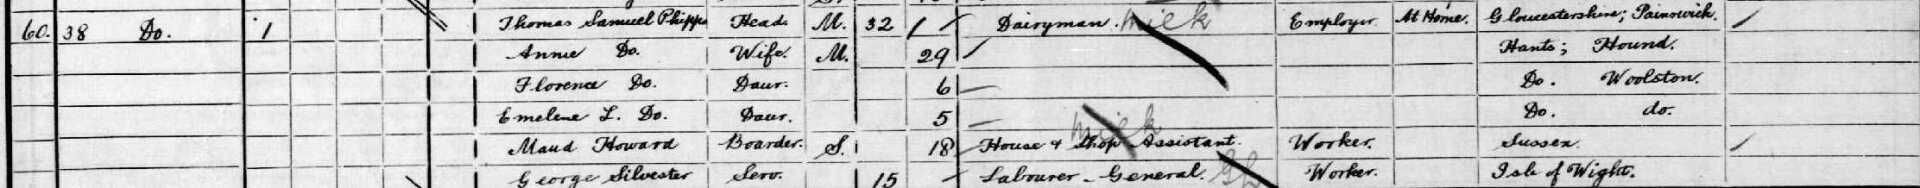 60. 38 Do. 1 Thomas Samuel Phipps Head. M. 32 Dairyman. milk Employer. At Home. Gloucestershire; Painswick.
Annie Do. Wife. M. 29 Hants; Hound.
Florence Do. Daur. 6 Do. Woolston.
Emelene L. Do. Daur. 5 Do. do.
Maud Howard Boarder. S. 18 House & Shop Assistant. milk Worker. Sussex.
George Silvester Serv. 15 Labourer - General. Worker. Isle of Wight.